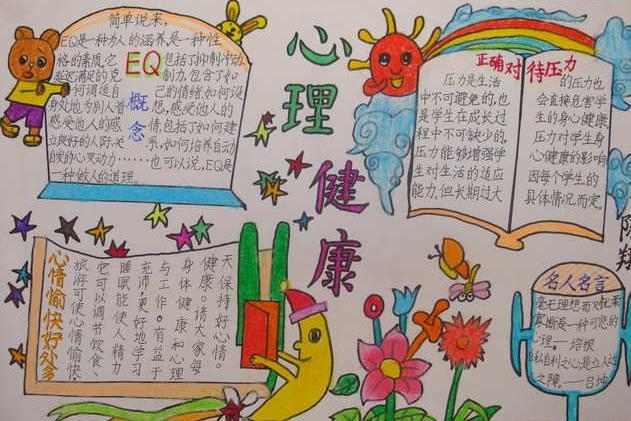 心理健康
简单说来,
EQ是一种为人的涵养,是一种性
格的素质,它
包括了抑制冲动
延迟满足的克
制力,包含了如
何调适自
己的情绪,如何设
身处地为别人着
想,感受他人的
感受他人的感
情,包括了如何建
立良好的人际关
系,如何培养自动
自发的心灵动力……也可以说,EQ是
一种做人的道理。
EQ
概
念
正确对待压力
压力是生活
中不可避免的,也
是学生在成长过
程中不可缺少的,
压力能够增强学
生对生活的适应
能力,但长期过大
的压力也
会直接危害学
生的身心健康,
压力对学生身
心健康的影响
因每个学生的
具体情况而定。
心情愉快好处多
旅游可使心情愉快,
它可以调节饮食、
睡眠,能使人精力
充沛,更好地学习
与工作。有益于
身体健康和心理
健康。请大家每
天保持好心情。
名人名言
毫无理想而又优柔
寡断是一种可悲的
心理。—培根
自私自利之心,是立人达人
之障。—吕坤